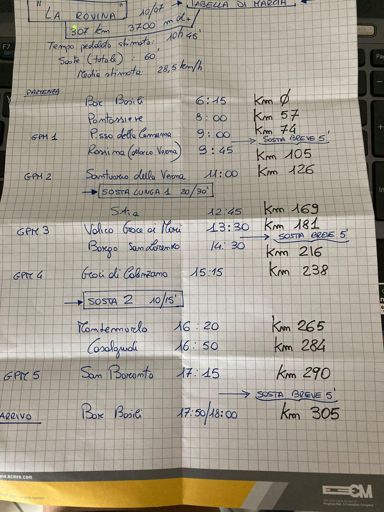 "LA ROVINA" 10/07 → TABELLA DI MARCIA
307 km 3700 m d+
Tempo pedalato stimato: 10h 45'
Soste (totali): 60'
Media stimata: 28,5 km/h
PARTENZA
Bar Basili 6:15 Km 0
Pontassieve 8:00 Km 57
GPM 1 P.sso della Consuma 9:00 Km 74
→ SOSTA BREVE 5'
Rassina 9:45 Km 105
GPM 2 Santuario della Verna 11:00 Km 126
→ SOSTA LUNGA 1 20/30'
Stia 12:45 Km 169
GPM 3 Valico Croce ai Mori 13:30 Km 181
→ SOSTA BREVE 5'
Borgo San Lorenzo 14:30 Km 216
GPM 4 Croci di Calenzano 15:15 Km 238
→ SOSTA 2 10/15'
Montemurlo 16:20 Km 265
Casalguidi 16:50 Km 284
GPM 5 San Baronto 17:15 Km 290
→ SOSTA BREVE 5'
ARRIVO Bar Basili 17:50/18:00 Km 305
ECM